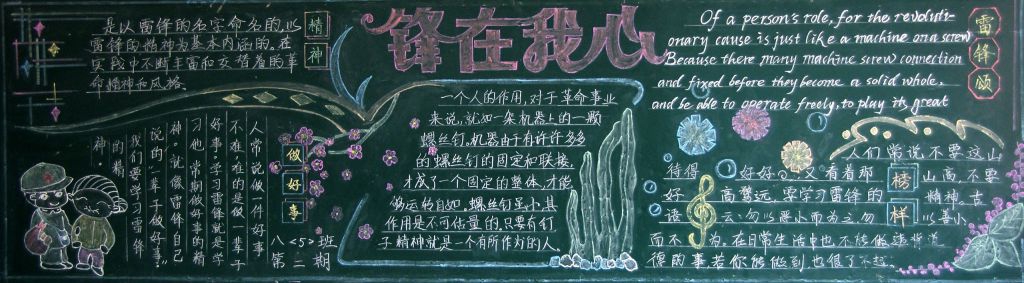 锋在我心
精神
是以雷锋的名字命名的,以
雷锋的精神为基本内涵的。在
实践中不断丰富和发展着的革
命精神和风格。
做好事
人常说做一件好事
不难,难的是做一辈子
好事。学习雷锋就是学
习他常期做好事的精
神。就像雷锋自己
说的:一辈子做好事,
我们要学习雷锋
的精
神。
八<5>班
第二期
一个人的作用,对于革命事业
来说,就如一架机器上的一颗
螺丝钉,机器由于有许许多多
的螺丝钉的固定和联接,
才成了一个固定的整体,才能
够运转自如,螺丝钉虽小,其
作用是不可估量的,只要有钉
子精神就是一个有所作为的人。
雷锋颂
Of a person's role, for the revoluti-
onary cause is just like a machine on a screw
Because there many machine screw connection
and fixed before they become a solid whole,
and be able to operate freely, to play its great
榜样
人们常说不要这山
待得好好 又看着那山高,不要
好高骛远,要学习雷锋的精神。古
语云:勿以恶小而为之,勿以善小
而不为。在日常生活中也不能做违背道
德的事,若你能做到也很了不起。